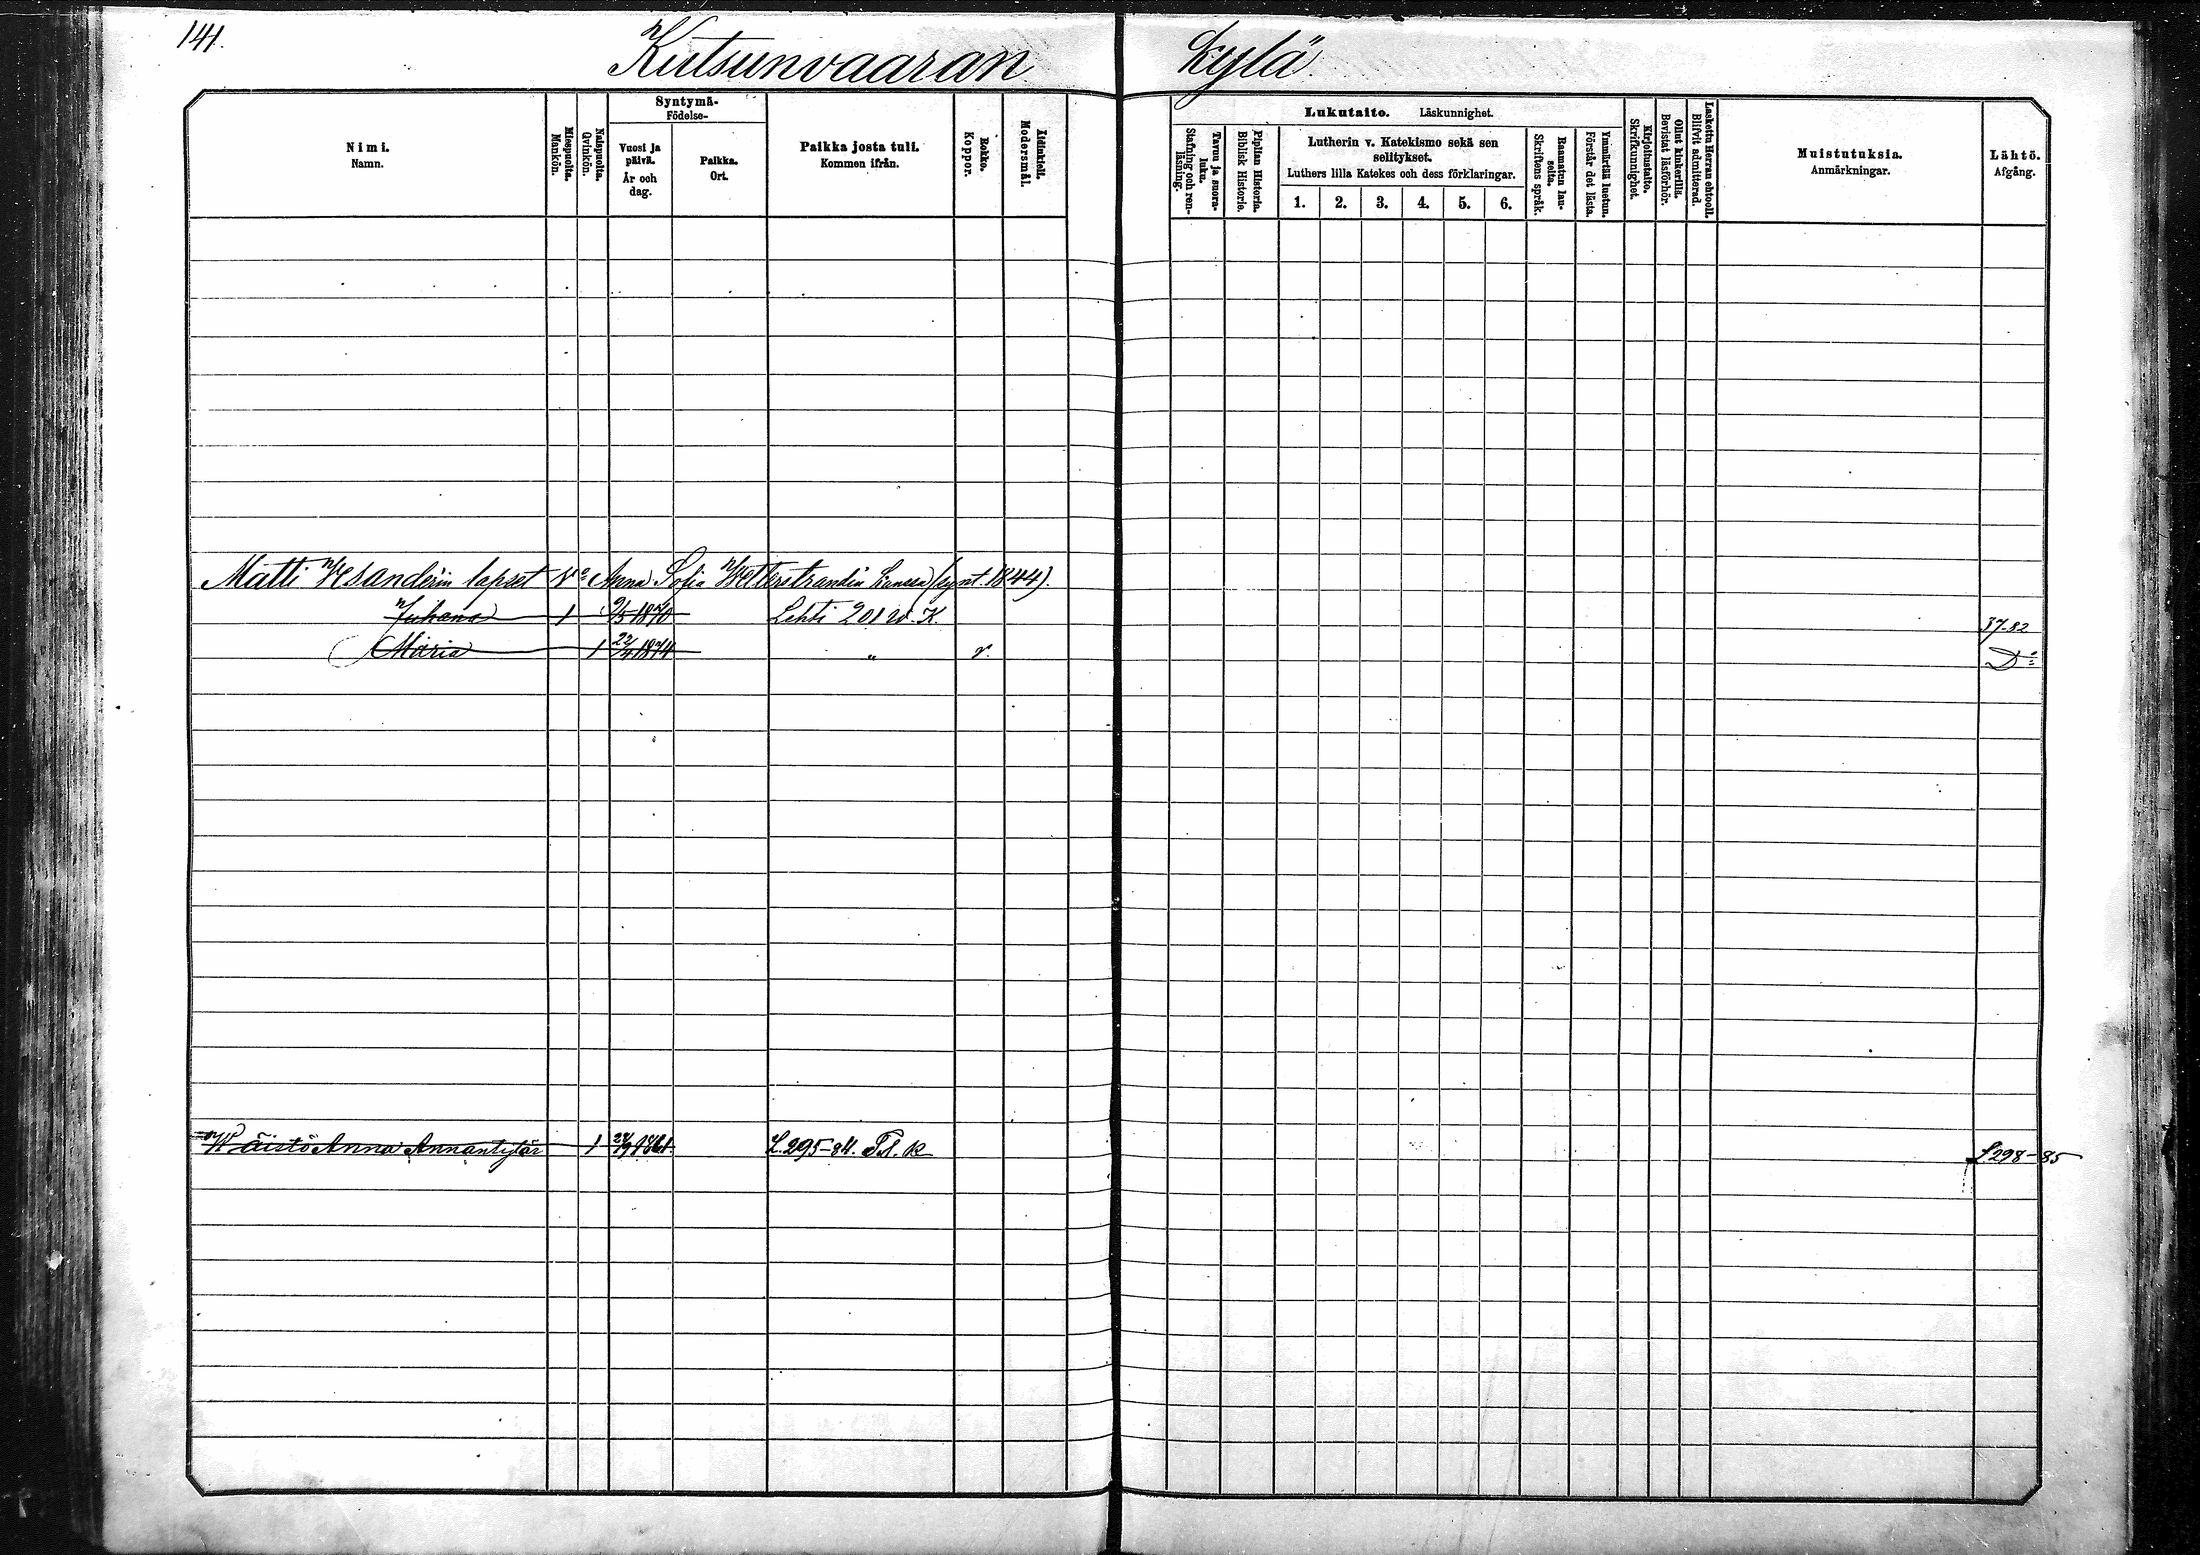 141.
Kutsunvaaran kylä.
Nimi.
Namn.
Miespuolta.
Mankön.
Naispuolta.
Qvinkön.
Syntymä-
Födelse-
Vuosi ja
päivä.
År och
dag.
Paikka.
Ort.
Paikka josta tuli.
Kommen ifrån.
Rokko.
Koppor.
Äidinkieli.
Modersmål.
Lukutaito. Läskunnighet.
Tavuu ja suora-
luku.
Stafning och ren-
läsning.
Piplian Historia.
Biblisk Historie.
Lutherin v. Katekismo sekä sen
selitykset.
Luthers lilla Katekes och dess förklaringar.
1. 2. 3. 4. 5. 6.
Raamatun lau-
seita.
Skriftens språk.
Ymmärtää luetun.
Förstår det lästa.
Kirjoitustaito.
Skrifkunnighet.
Ollut kinkerillä.
Bevistat läsförhör.
Laskettu Herran ehtooll.
Blifvit admitterad.
Muistutuksia.
Anmärkningar.
Lähtö.
Afgång.
Matti Wesanderin lapset Anna Sofia Wetterstrandin kanssa (synt. 1844).
Juhana 1 9/5 1870 Lehti 201 w. K. 37-82
Maria 1 22/4 1874 " r. D:o
Wäistö Anna Annantytär 1 1861 L. 295-84. L 298-85